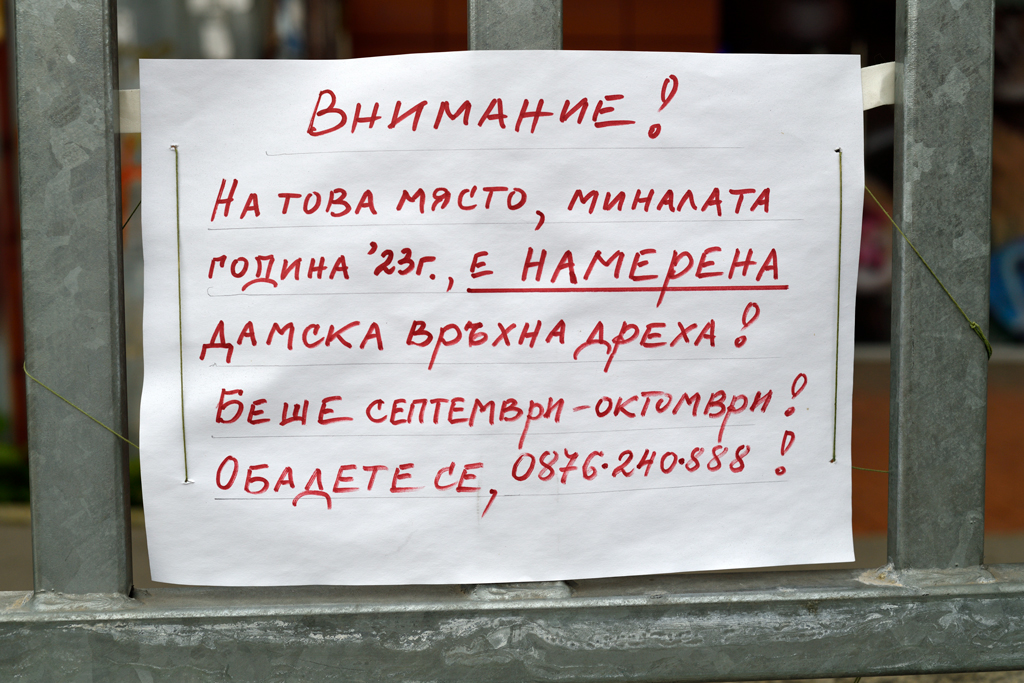 Внимание!
На това място, миналата
година '23г., е НАМЕРЕНА
дамска връхна дреха!
Беше септември-октомври!
Обадете се, 0876.240.888 !